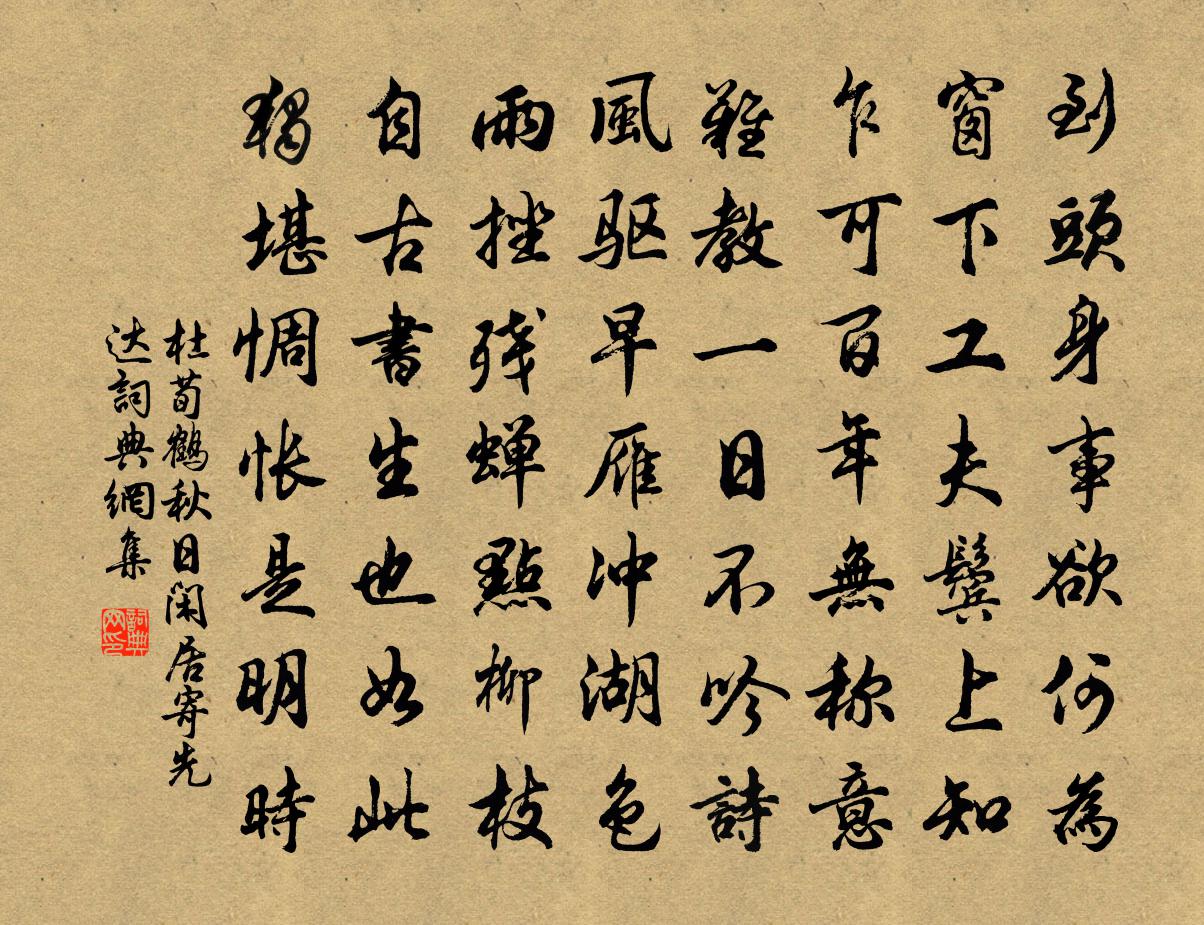 到頭身事欲何為
窗下工夫鬓上知
乍可百年無称意
難教一日不吟詩
風驱早雁冲湖色
雨挫残蝉點柳枝
自古書生也如此
獨堪惆怅是明時
杜荀鶴秋日閑居寄先
达詞典網集
詞典
网印